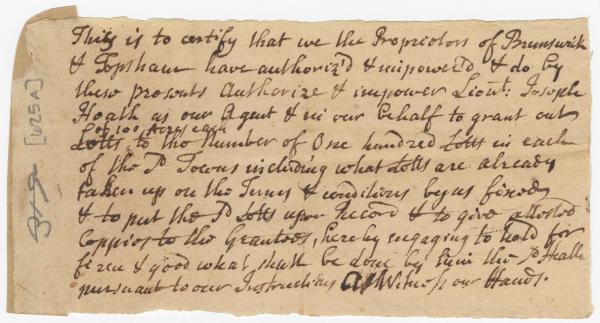 This is to certify that we the Propriotors of Brunswick
& Topsham have authoriz'd & impower'd & do by
these presents Authorize & impower Lieut: Joseph
Heath as our Agent & in our behalf to grant out
of 100 Acres each
Lotts to the number of One hundred Lotts in each
of the sd Towns including what Lotts are already
taken up on the Terms & conditions by us fixed
& to put the sd Lotts upon Record & to give attested
Coppies to the Grantees, hereby engaging to hold for
firm & good what shall be done by him the sd Heath
pursuant to our Instructions As Witness our Hands.
[625A]